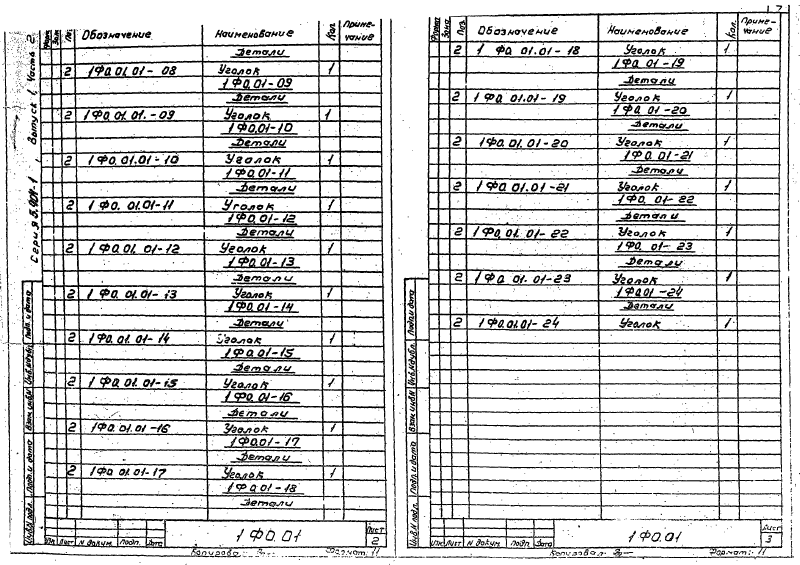 Серия 3.501-1, Выпуск 1, Часть 2
Обозначение Наименование Кол. Приме-чание
Детали
2 1Ф0.01.01-08 Уголок 1
1Ф0.01-09
Детали
2 1Ф0.01.01.-09 Уголок 1
1Ф0.01-10
Детали
2 1Ф0.01.01-10 Уголок 1
1Ф0.01-11
Детали
2 1Ф0.01.01-11 Уголок 1
1Ф0.01-12
Детали
2 1Ф0.01.01-12 Уголок 1
1Ф0.01-13
Детали
2 1Ф0.01.01-13 Уголок 1
1Ф0.01-14
Детали
2 1Ф0.01.01-14 Уголок 1
1Ф0.01-15
Детали
2 1Ф0.01.01-15 Уголок 1
1Ф0.01-16
Детали
2 1Ф0.01.01-16 Уголок 1
1Ф0.01-17
Детали
2 1Ф0.01.01-17 Уголок 1
1Ф0.01-18
Детали
Инв.№ подл. Подп. и дата Взам.инв.№ Инв.№дубл. Подп. и дата
1Ф0.01
Лист
2
Изм Лист № докум. Подп. Дата
Копировал Формат: 11
Формат Зона Поз. Обозначение Наименование Кол. Приме-чание
2 1Ф0.01.01-18 Уголок 1
1Ф0.01-19
Детали
2 1Ф0.01.01-19 Уголок 1
1Ф0.01-20
Детали
2 1Ф0.01.01-20 Уголок 1
1Ф0.01-21
Детали
2 1Ф0.01.01-21 Уголок 1
1Ф0.01-22
Детали
2 1Ф0.01.01-22 Уголок 1
1Ф0.01-23
Детали
2 1Ф0.01.01-23 Уголок 1
1Ф0.01-24
Детали
2 1Ф0.01.01-24 Уголок 1
Инв.№ подл. Подп. и дата Взам.инв.№ Инв.№дубл. Подп. и дата
1Ф0.01
Лист
3
Изм Лист № докум. Подп. Дата
Копировал Формат: 11